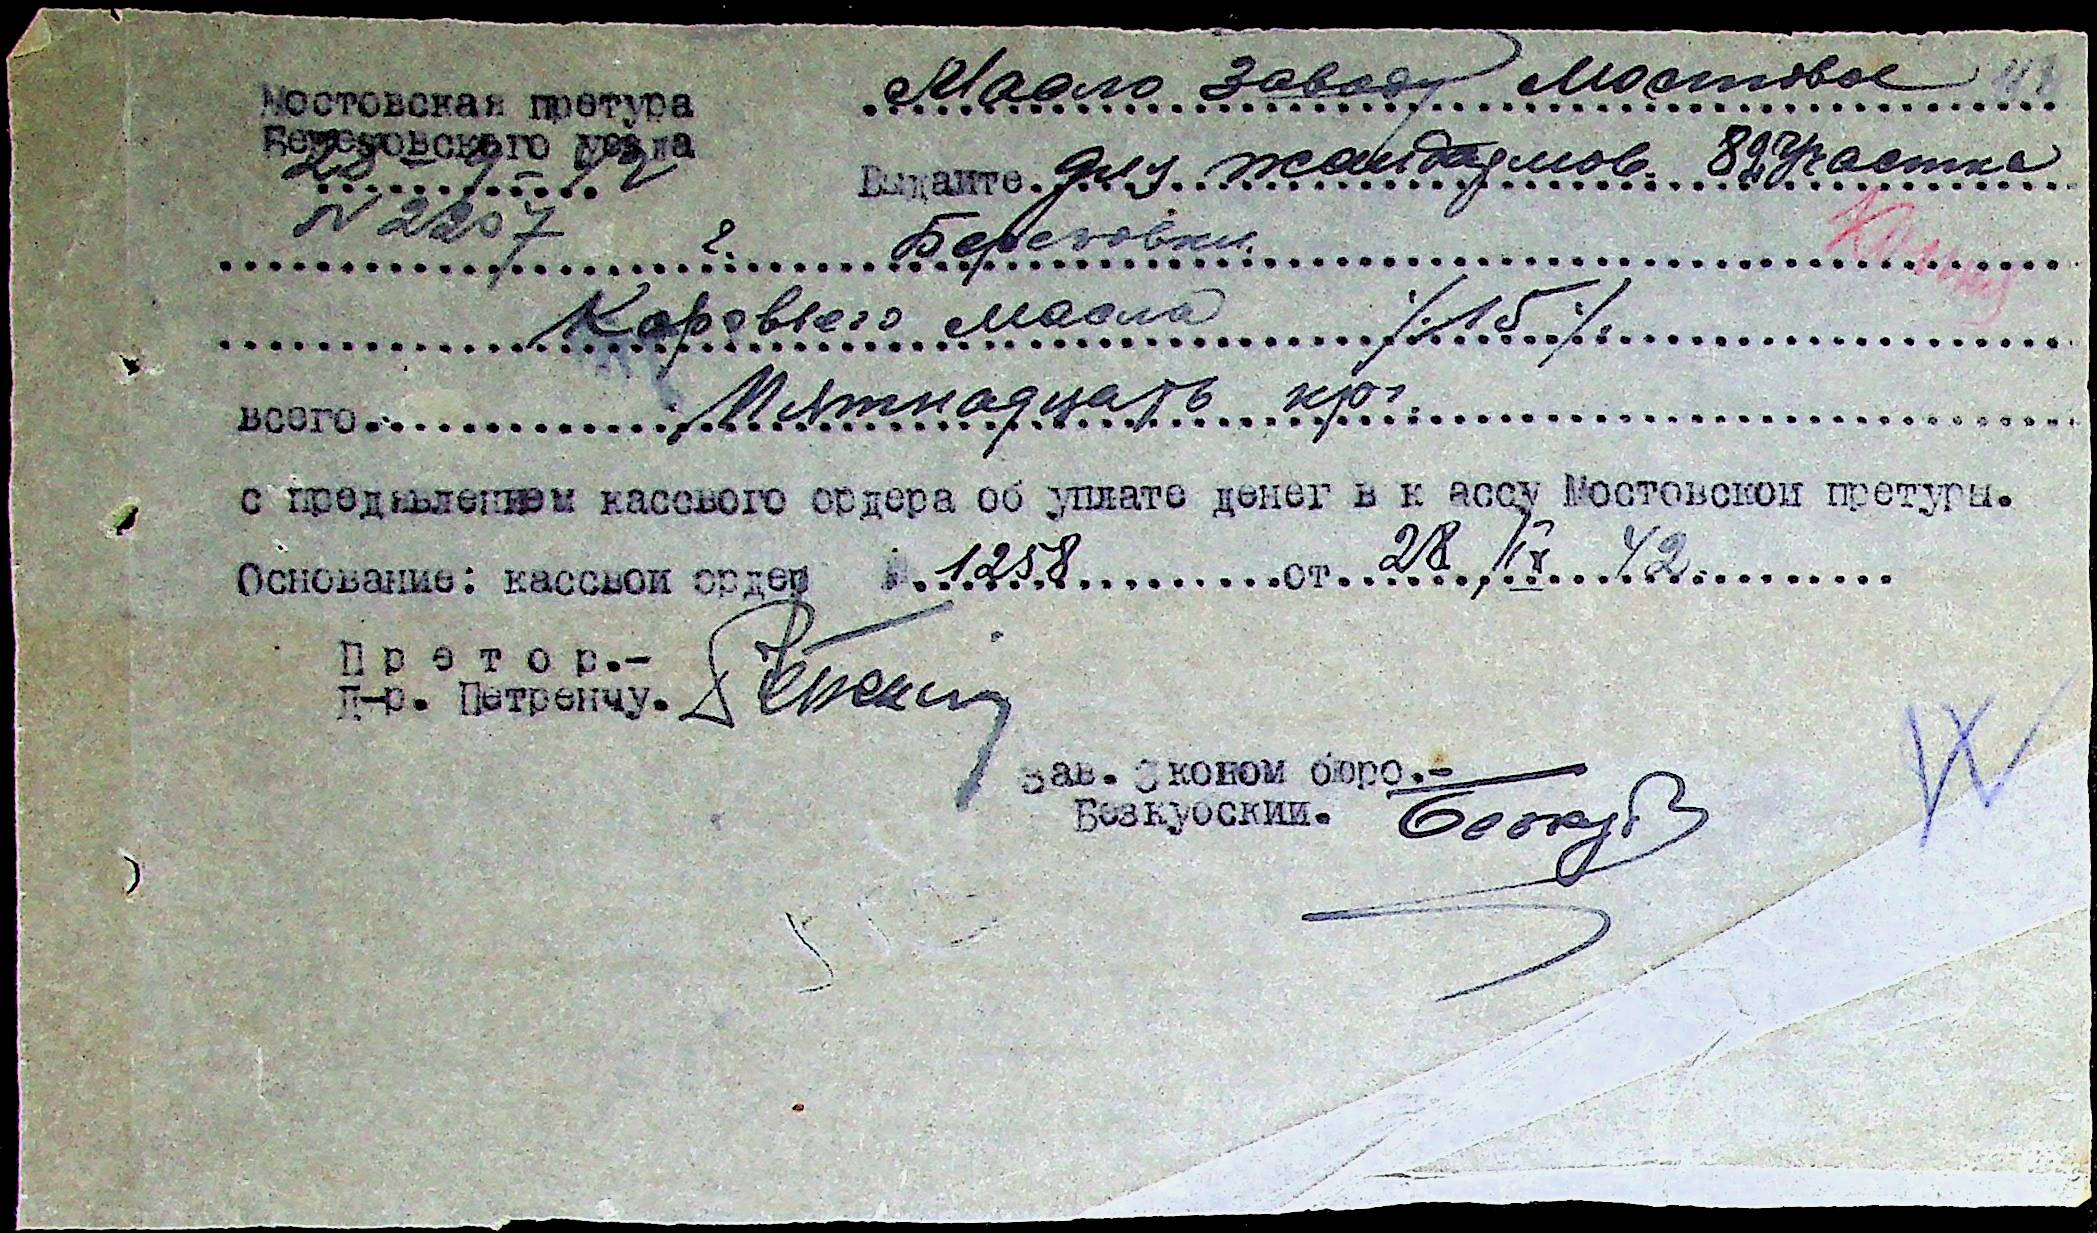 Мостовская претура
Березовского уезда
28 - 9 - 42
N 2207
Масло Заводу Мостовое
Выдаите для жандармов. 82 участка
г. Березовки.
Каровьего масла /:15:/
всего Пятнадцать кгр.
с пред'явлением кассвого ордера об уплате денег в к ассу Мостовскои претуры.
Основание: кассвои ордер № 1258 от 28/IX 42.
П р е т о р.-
Д-р. Петренчу.
Зав. Эконом бюро.-
Безкуоскии.